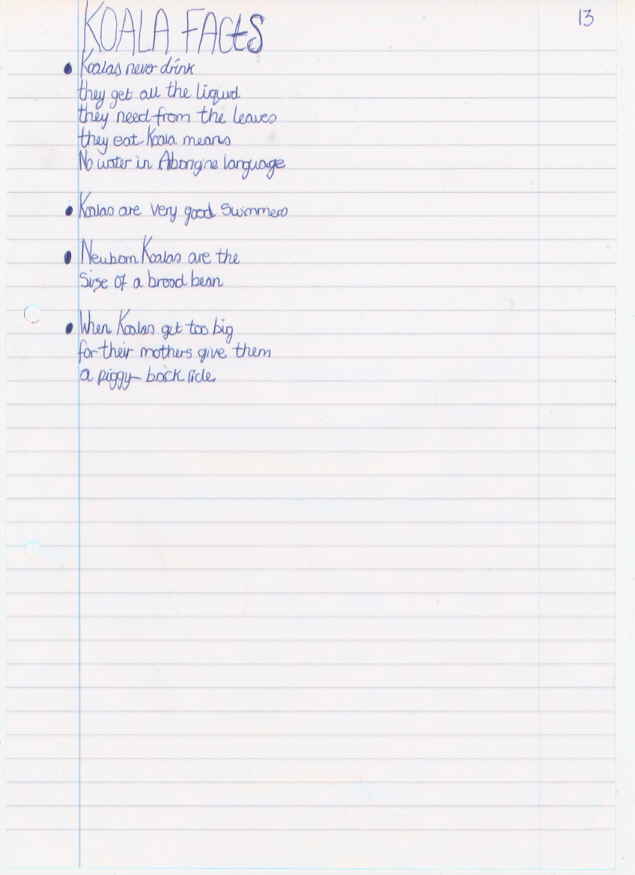 13
KOALA FActS
• Koalas never drink
they get all the liquid
they need from the leaves
they eat Koala means
No water in Aborigine language
• Koalas are very good swimmers
• Newborn Koalas are the
Size of a broad bean
• When Koalas get too big
for their mothers give them
a piggy-back ride.